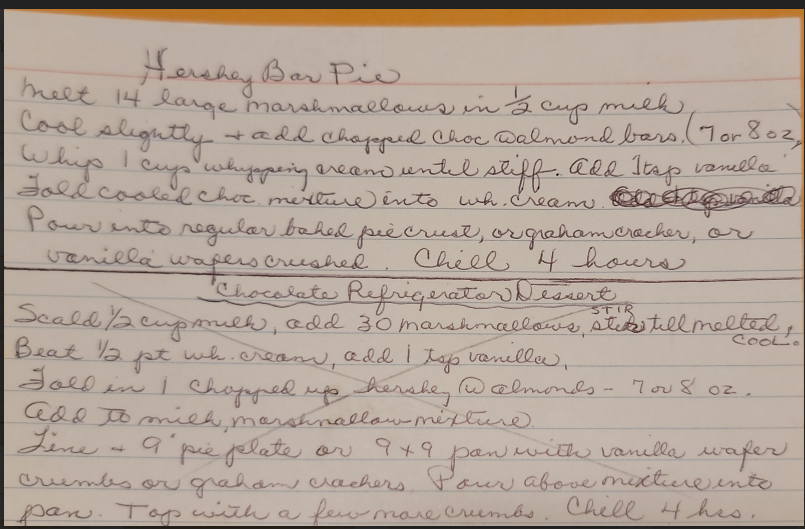 Hershey Bar Pie
Melt 14 large marshmallows in 1/2 cup milk
Cool slightly + add chopped choc w almond bars. (7 or 8 oz,)
Whip 1 cup whypping cream until stiff. Add 1 tsp vanilla
Fold cooled choc. mixture into wh. cream.
Pour into regular baked pie crust, or graham cracker, or
vanilla wafers crushed. Chill 4 hours
Chocolate Refrigerator Dessert
Scald 1/2 cup milk, add 30 marshmallows, STIR till melted,
COOL.
Beat 1/2 pt wh. cream, add 1 tsp vanilla,
Fold in 1 chopped up hershey w almonds - 7 or 8 oz.
Add to milk, marshmallow mixture
Line a 9" pie plate or 9x9 pan with vanilla wafer
crumbs or graham crackers. Pour above mixture into
pan. Top with a few more crumbs. Chill 4 hrs.